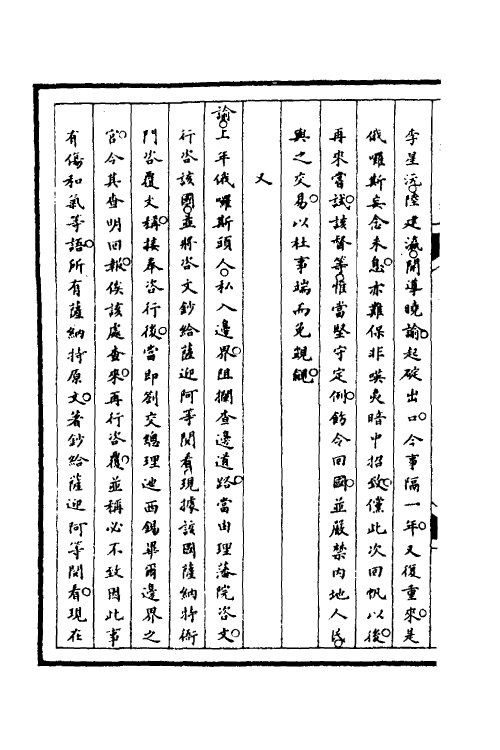 李星沅陸建瀛開導曉諭起碇出口今事隔一年又復重來是
俄囉斯妄念未息亦難保非㗸夷暗中招致儻此次回帆以後
再來嘗試該督等惟當堅守定例飭令回國並嚴禁內地人民
與之交易以杜事端而免覬覦
又
諭上年俄囉斯頭人私入邊界阻攔查邊道路當由理藩院咨文
行咨該國並將咨文鈔給薩迎阿等閱看現據該國薩納特衙
門咨覆文稱接奉咨行後當即劄交總理迪西錫畢爾邊界之
官令其查明回報俟該處查來再行咨覆並稱必不致因此事
有傷和氣等語所有薩納特原文著鈔給薩迎阿等閱看現在